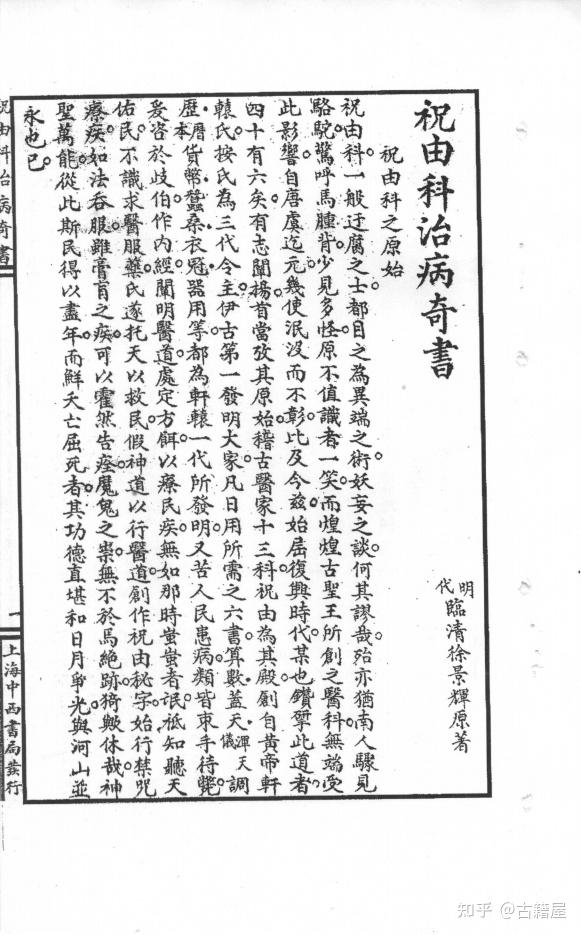 祝由科治病奇書
明代臨清徐景輝原著
祝由科之原始
祝由科。一般迂腐之士。都目之為異端之術。妖妄之談。何其謬哉。殆亦猶南人驟見
駱駝。驚呼馬腫背。少見多怪。原不值識者一笑。而煌煌古聖王所創之醫科。無端受
此影響。自唐虞迄元。幾使泯沒而不彰。比及今茲。始屆復興時代。某也鑽揅此道者
四十有六矣。有志闡揚。首當攷其原始。稽古醫家十三科。祝由為其殿。創自黃帝軒
轅氏。按氏為三代令主。伊古第一發明大家。凡日用所需之六書算數蓋天渾天儀調
歷曆本貨幣蠶桑衣冠器用等。都為軒轅一代所發明。又苦人民患病。類皆束手待斃。
爰咨於歧伯。作內經。闡明醫道。處定方餌。以療民疾。無如那時蚩蚩者氓。祗知聽天
佑民。不識求醫服藥。氏遂托天以救民。假神道以行醫道。創作祝由秘字。始行禁咒
療疾。如法吞服。雖膏肓之疾。可以霍然告痊。魔鬼之祟。無不於焉絕跡。猗歟休哉。神
聖萬能。從此斯民得以盡年。而鮮夭亡屈死者。其功德直堪和日月爭光。與河山並
永也已。
祝由科治病奇書
一
上海中西書局發行
知乎 @古籍屋